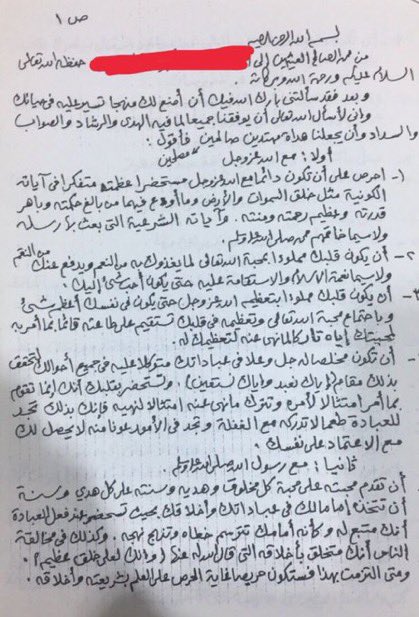 ص ١
بسم الله الرحمن الرحيم
من محمد الصالح العثيمين إلى حفظه الله تعالى
السلام عليكم ورحمة الله وبركاته
وبعد فقد سألتني بارك الله فيك أن أضع لك منهجا تسير عليه في حياتك
وإني لأسأل الله تعالى أن يوفقنا جميعا لما فيه الهدى والرشاد والصواب
والسداد وأن يجعلنا هداة مهتدين صالحين مصلحين فأقول:
أولا: مع الله عز وجل
١- احرص على أن تكون دائما مع الله عز وجل مستحضرا عظمته متفكرا في آياته
الكونية مثل خلق السموات والأرض وما أودع فيهما من بالغ حكمته وباهر
قدرته وعظيم رحمته ومنته. وآياته الشرعية التي بعث بها رسله
ولا سيما خاتمهم محمد صلى الله عليه وسلم.
٢- أن يكون قلبك مملوءا بمحبة الله تعالى لما يغذوك به من النعم ويدفع عنك من النقم
ولا سيما نعمة الإسلام والاستقامة عليه حتى يكون أحب شيء إليك.
٣- أن يكون قلبك مملوءا بتعظيم الله عز وجل حتى يكون في نفسك أعظم شيء
وباجتماع محبة الله تعالى وتعظيمه في قلبك تستقيم على طاعته قائما بما أمر به
لمحبتك إياه تاركا لما نهى عنه لتعظيمك له.
- أن تكون مخلصا له جل وعلا في عباداتك متوكلا عليه في جميع أحوالك لتحقق
بذلك مقام (إياك نعبد وإياك نستعين). وتستحضر بقلبك أنك إنما تقوم
بما أمر امتثالا لأمره وتترك ما نهى عنه امتثالا لنهيه فإنك بذلك تجد
للعبادة طعما لا تدركه مع الغفلة وتجد في الأمور عونا منه لا يحصل لك
مع الاعتماد على نفسك.
ثانيا: مع رسول الله صلى الله عليه وسلم.
أن تقدم محبته على محبة كل مخلوق وهديه وسنته على كل هدي وسنة
أن تتخذه إماما لك في عباداتك وأخلاقك بحيث تستحضر عند فعل العبادة
أنك متبع له وكأنه أمامك تترسم خطاه وتنهج نهجه. وكذلك في مخالقة
الناس أنك متخلق بأخلاقه التي قال الله عنها (وإنك لعلى خلق عظيم).
ومتى التزمت بهذا فستكون حريصا غاية الحرص على العلم بشريعته وأخلاقه.